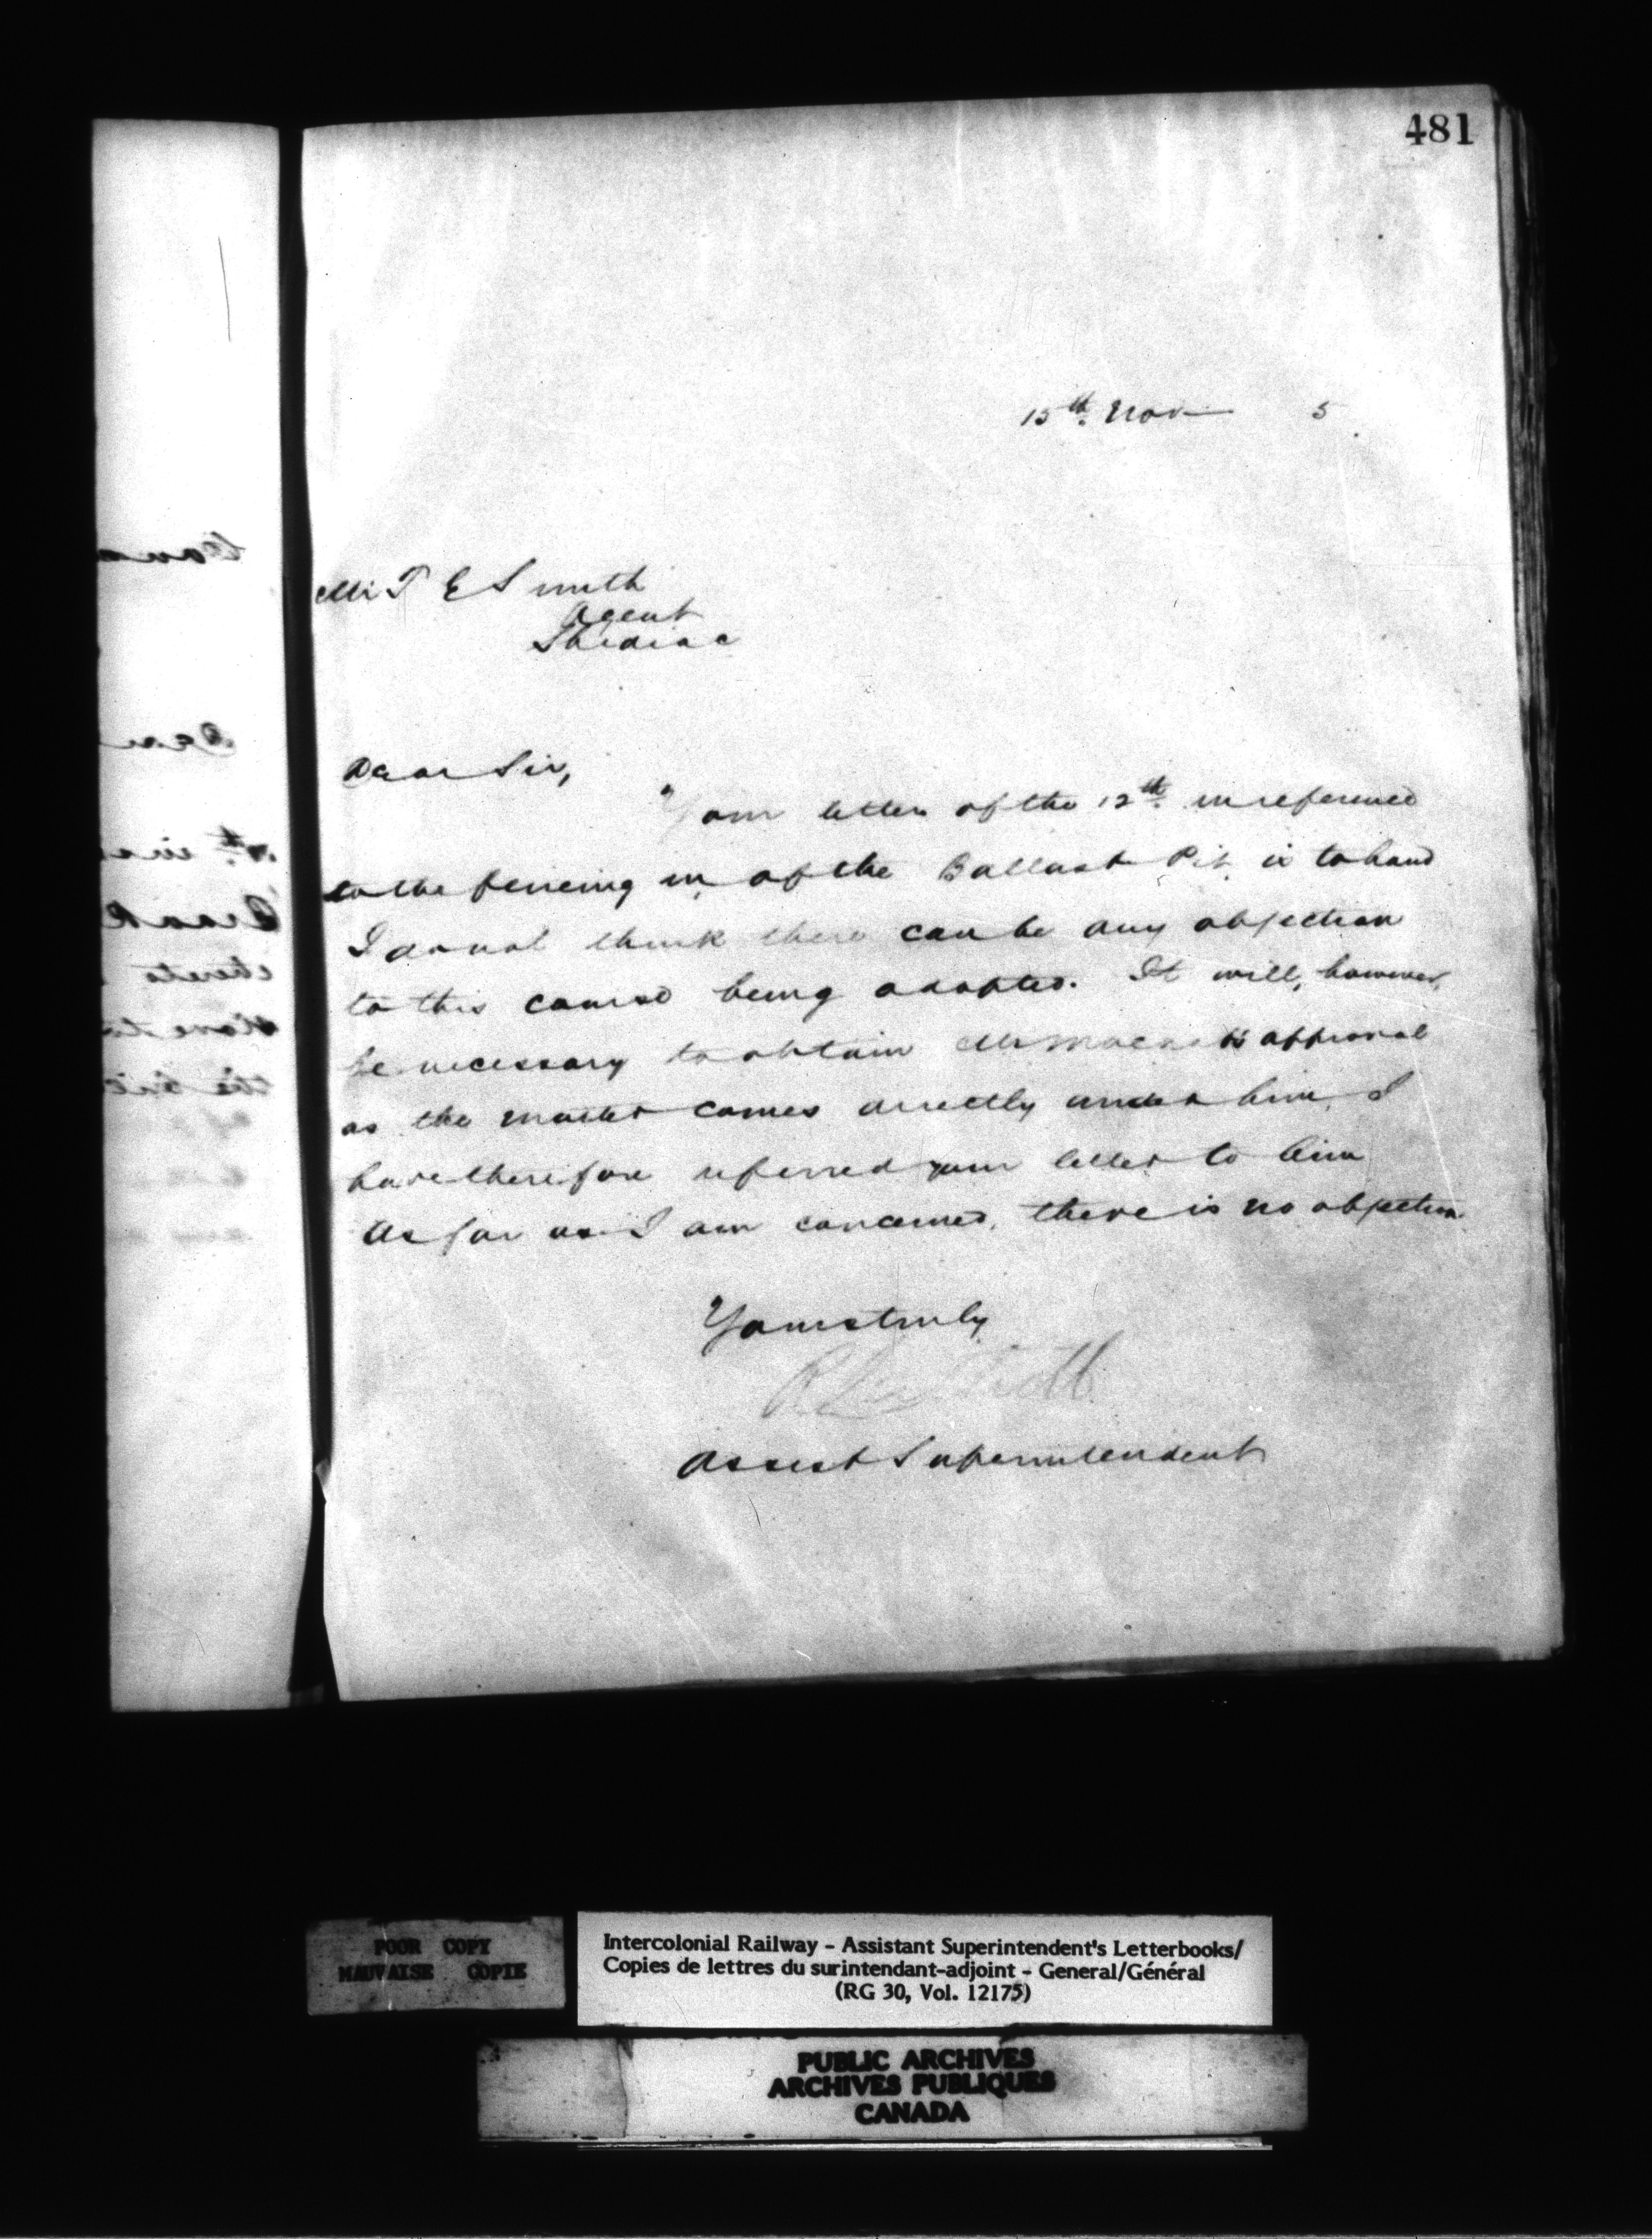 481
15th Nov 5
Mr T E Smith
Agent
Shediac
Dear Sir,
Your letter of the 12th in reference
to the fencing in of the Ballast Pit is to hand
I do not think there can be any objection
to this course being adopted. It will, however,
be necessary to obtain Mr approval
as the matter comes directly under him I
have therefore referred your letter to him
As far as I am concerned, there is no objection.
Yours truly
Assist Superintendent
POOR COPY
MAUVAISE COPIE
Intercolonial Railway - Assistant Superintendent's Letterbooks/
Copies de lettres du surintendant-adjoint - General/Général
(RG 30, Vol. 12175)
PUBLIC ARCHIVES
ARCHIVES PUBLIQUES
CANADA